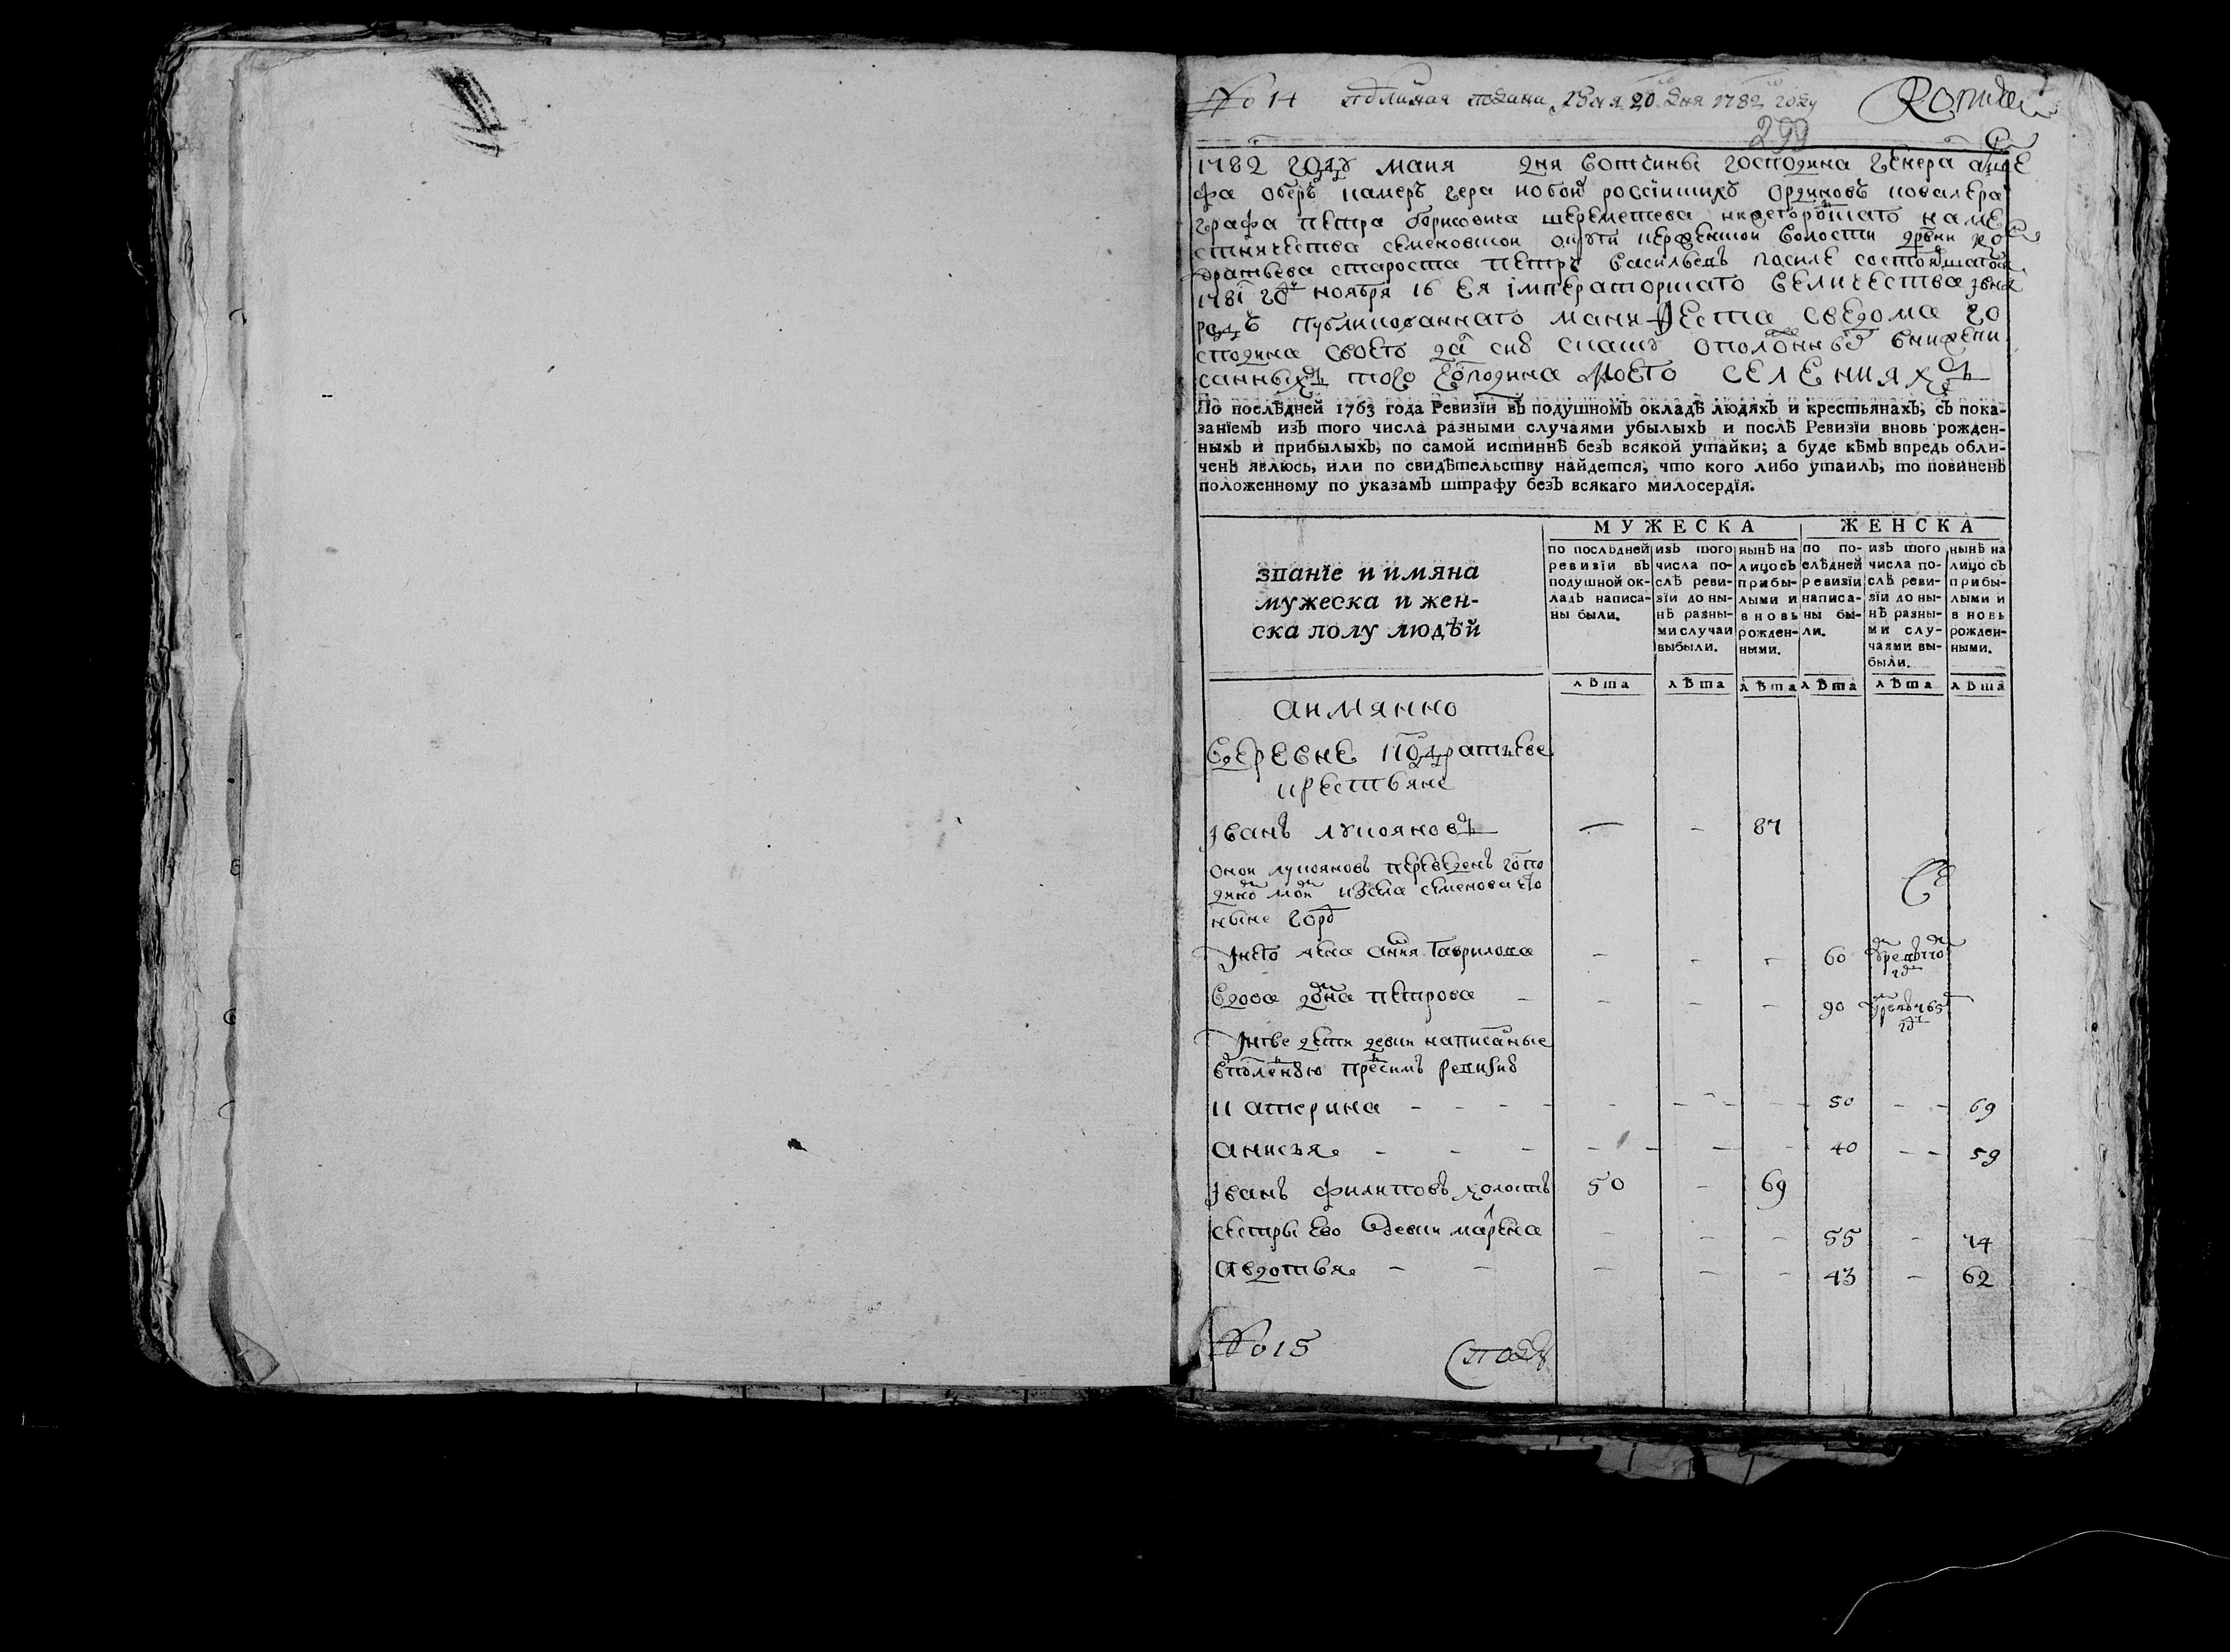 No 14 подлиная подана мая 20 дня 1782 году Копия
299
1782 году маия дня вотчины господина генера аншефа
обер камергера и обоих российских ординов ковалера
графа Петра Борисовича Шереметева нижегороцкого наме
стничества семеновской округи деревни Ко
дратьева староста Петр Васильев после состоявшагося
1781 году ноября 16 Ея Императорскаго Величества
публикованнаго манифеста сведома го
сподина своего дал сию скаску о положенных внижепи
санных того господина моего селениях
По послѣдней 1763 года Ревизїи въ подушномъ окладѣ людяхъ и крестьянахъ, съ пока-
занїемъ изъ того числа разными случаями убылыхъ и послѣ Ревизїи вновь рожден-
ныхъ и прибылыхъ, по самой истиннѣ безъ всякой утайки; а буде кѣмъ впредь обли-
ченъ явлюсь, или по свидѣтельству найдется, что кого либо утаилъ, то повиненъ
положенному по указамъ штрафу безъ всякаго милосердїя.
МУЖЕСКА ЖЕНСКА
званїе и имяна
мужеска и жен-
ска полу людѣй
по послѣдней
ревизїи въ
подушной ок-
ладъ написа-
ны были.
изъ того
числа по-
слѣ реви-
зїи до ны-
нѣ разны-
ми случаи
выбыли.
нынѣ на
лицо съ
прибы-
лыми и
вновь
рожден-
ными.
по по-
слѣдней
ревизїи
написа-
ны бы-
ли.
изъ того
числа по-
слѣ реви-
зїи до ны-
нѣ разны-
ми слу-
чаями вы-
были.
нынѣ на
лицо съ
прибы-
лыми и
вновь
рожден-
ными.
лѣта лѣта лѣта лѣта лѣта лѣта
а имянно
вдеревне Кодратьеве
крестьяне
Iванъ Лукояновъ — - 87
оной Лукояновъ переведенъ госпо
диномъ моим изсела Семенова что
ныне город
У него жена Анна Гаврилова - - - 60
Вдова Домна Петрова - - - - 90
У нее дети девки написаные
вполседнюю пред симъ ревизию
Катерина - - - - 50 - - 69
Анисья - - - - - - 40 - - 59
Iванъ Филиповъ холостъ 50 - 69
сестры ево девки Марфа - - - 55 - 74
Авдотья - - - - - 43 - 62
No 15